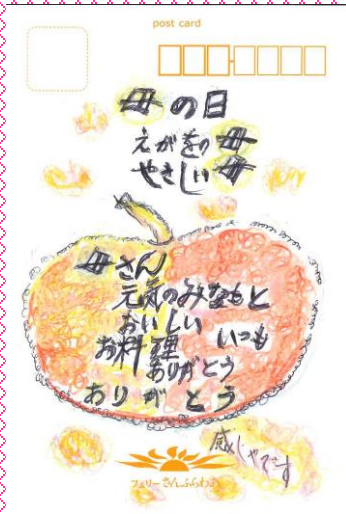 post card
母の日
えがをの母
やさしい母
母さん
元気のみなもと
おいしい
お料理 いつも
ありがとう
ありがとう
感しゃです
フェリーさんふらわあ